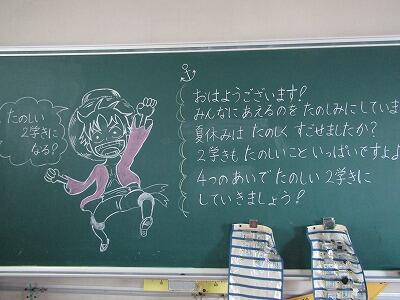 たのしい
2学きに
なる!
おはようございます!
みんなにあえるのを たのしみにしていま
夏休みは たのしく すごせましたか?
2学きも たのしいこと いっぱいですよ
4つのあいで たのしい 2学きに
していきましょう!